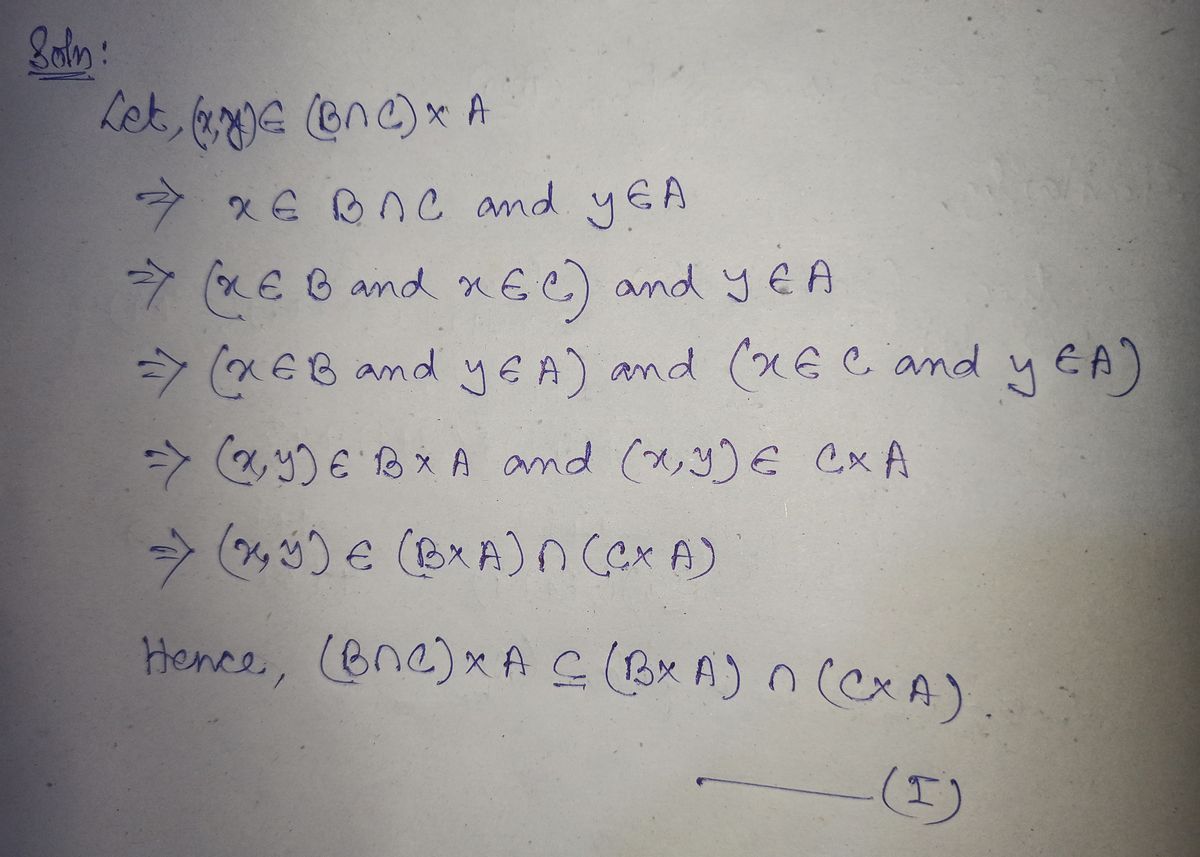 Soln:
Let, (x,y)∈ (B∩C) × A
⇒ x ∈ B∩C and y∈A
⇒ (x∈ B and x∈C) and y ∈A
⇒ (x∈B and y∈A) and (x∈ C and y ∈A)
⇒ (x,y)∈ B×A and (x,y)∈ C×A
⇒ (x,y) ∈ (B×A)∩(C×A)
Hence, (B∩C)×A ⊆ (B×A) ∩ (C×A).
——— (I)